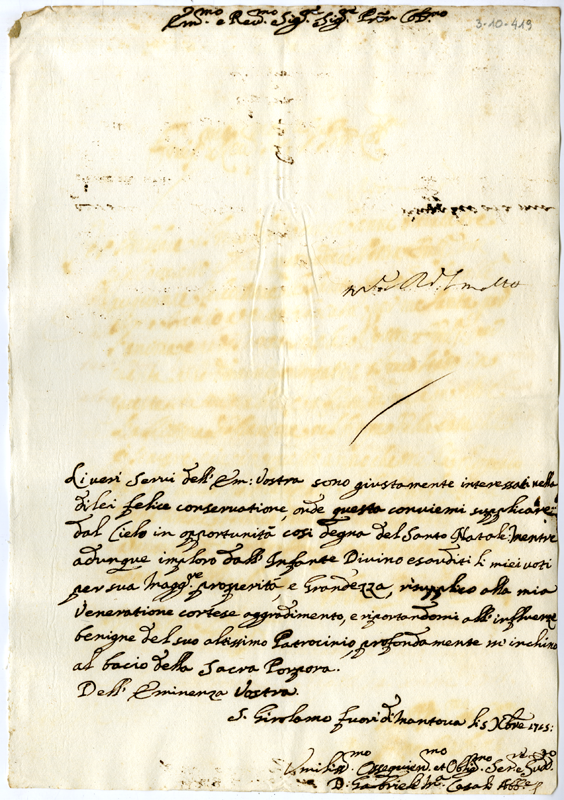 Em.mo e Rev.mo Sig.re Sig.re P.ron Col.mo
3-10-419
Li veri Servi dell' Em: Vostra sono giustamente interessati nella
di lei felice conservatione, onde questa conviemi supplicare
dal Cielo in opportunità così degna del Santo Natale. Mentre
adunque imploro dall' Infante Divino esauditi li miei voti
per sua magg.re prosperità e Grandezza, risupplico alla mia
Veneratione cortese aggradimento, e riportandomi all' influenze
benigne del suo altissimo Patrocinio profondamente m' inchino
al bacio della Sacra Porpora.
Dell' Eminenza Vostra
S. Girolamo fuori di Mantova li 5 Xbre 1725:
Umiliss.mo Ossequien.mo et Oblig.mo Ser.e
D. Gabriele M.a Casali